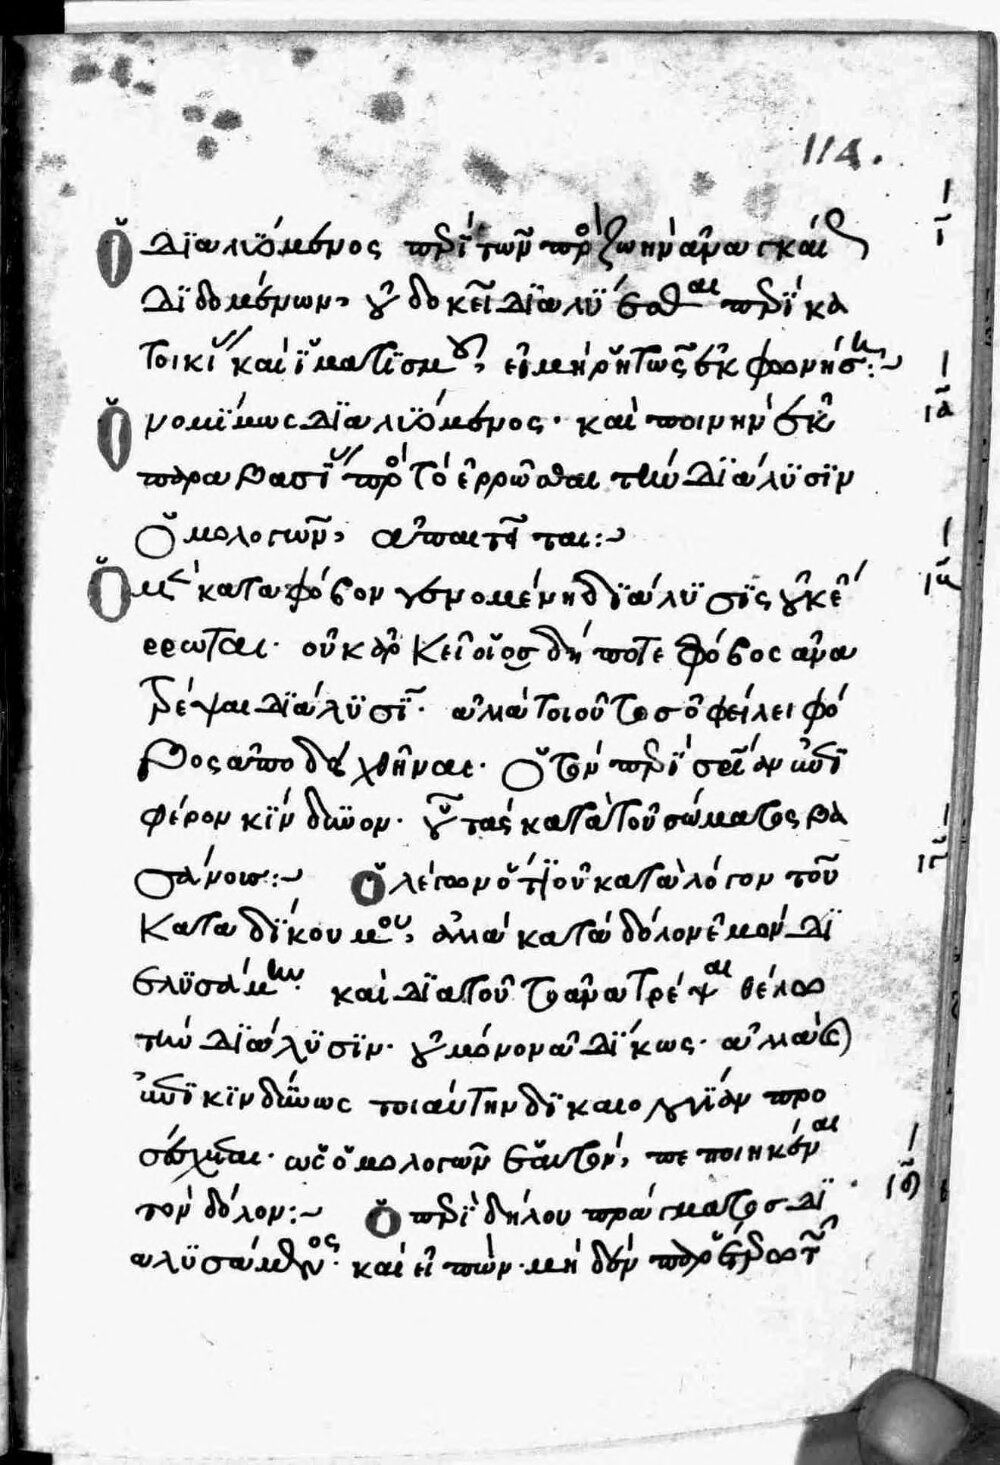 114.
Ὁ διαλυόμενος περὶ τῶν πρὸς ζωὴν ἀναγκαί
διδομένων, οὐ δοκεῖ διαλύεσθαι περὶ κα
τοικί καὶ ἱματισμοῦ, εἰ μὴ ῥητῶς ἐκφωνήσ:~
ια
Ὁ νομίμως διαλυόμενος· καὶ ποινὴν ἐκ
παραβασί πρὸς τὸ ἐρρῶσθαι τὴν διάλυσιν
ὁμολογῶν, ἀπαιτεῖται:~
Ὁ κατὰ φόβον γενομένη διάλυσις οὐκ ἔ
ρρωται· οὐκ ἀρκεῖ οἷος δήποτε φόβος ἀνα
τρέψαι διάλυσι· ἀλλὰ τοιοῦτος ὀφείλει φό
βος ἀποδειχθῆναι· ὁ τὸν περὶ σωτηρίαν ἐπι
φέρον κίνδυνον· ἢ τὰς κατὰ τοῦ σώματος βα
σάνους:~ Ὁ λέγων ὅτι οὐ κατὰ λόγον τοῦ
καταδίκου μου, ἀλλὰ κατὰ δόλον ἐμὸν δι
ελυσάμην· καὶ διὰ τοῦτο ἀνατρέψαι θέλω
τὴν διάλυσιν· οὐ μόνον ἀδίκως· ἀλλὰ
ἐπικινδύνως τοιαύτην δικαιολογίαν προ
ίσχεται· ὡς ὁμολογῶν ἑαυτὸν, πεποιηκέναι
τὸν δόλον:~ Ὁ περὶ δήλου πράγματος δι
αλυσάμενος· καὶ εἰπὼν μηδὲν